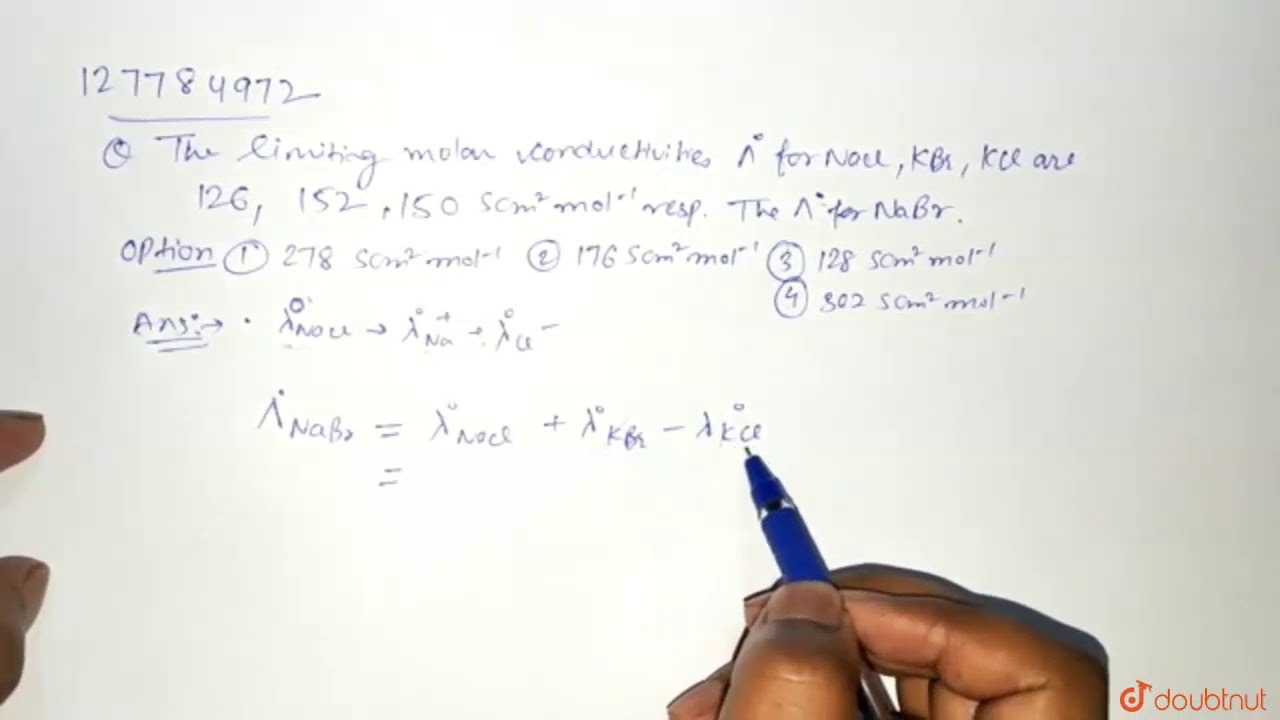 127784972
Q The limiting molar conductivities Λ° for NaCl, KBr, KCl are
126, 152, 150 Scm² mol⁻¹ resp. The Λ° for NaBr.
Option ① 278 Scm² mol⁻¹ ② 176 Scm² mol⁻¹ ③ 128 Scm² mol⁻¹
④ 302 Scm² mol⁻¹
Ans:→ · λ°NaCl → λ°Na⁺ + λ°Cl⁻
Λ°NaBr = λ°NaCl + λ°KBr − λ°KCl
=
doubtnut